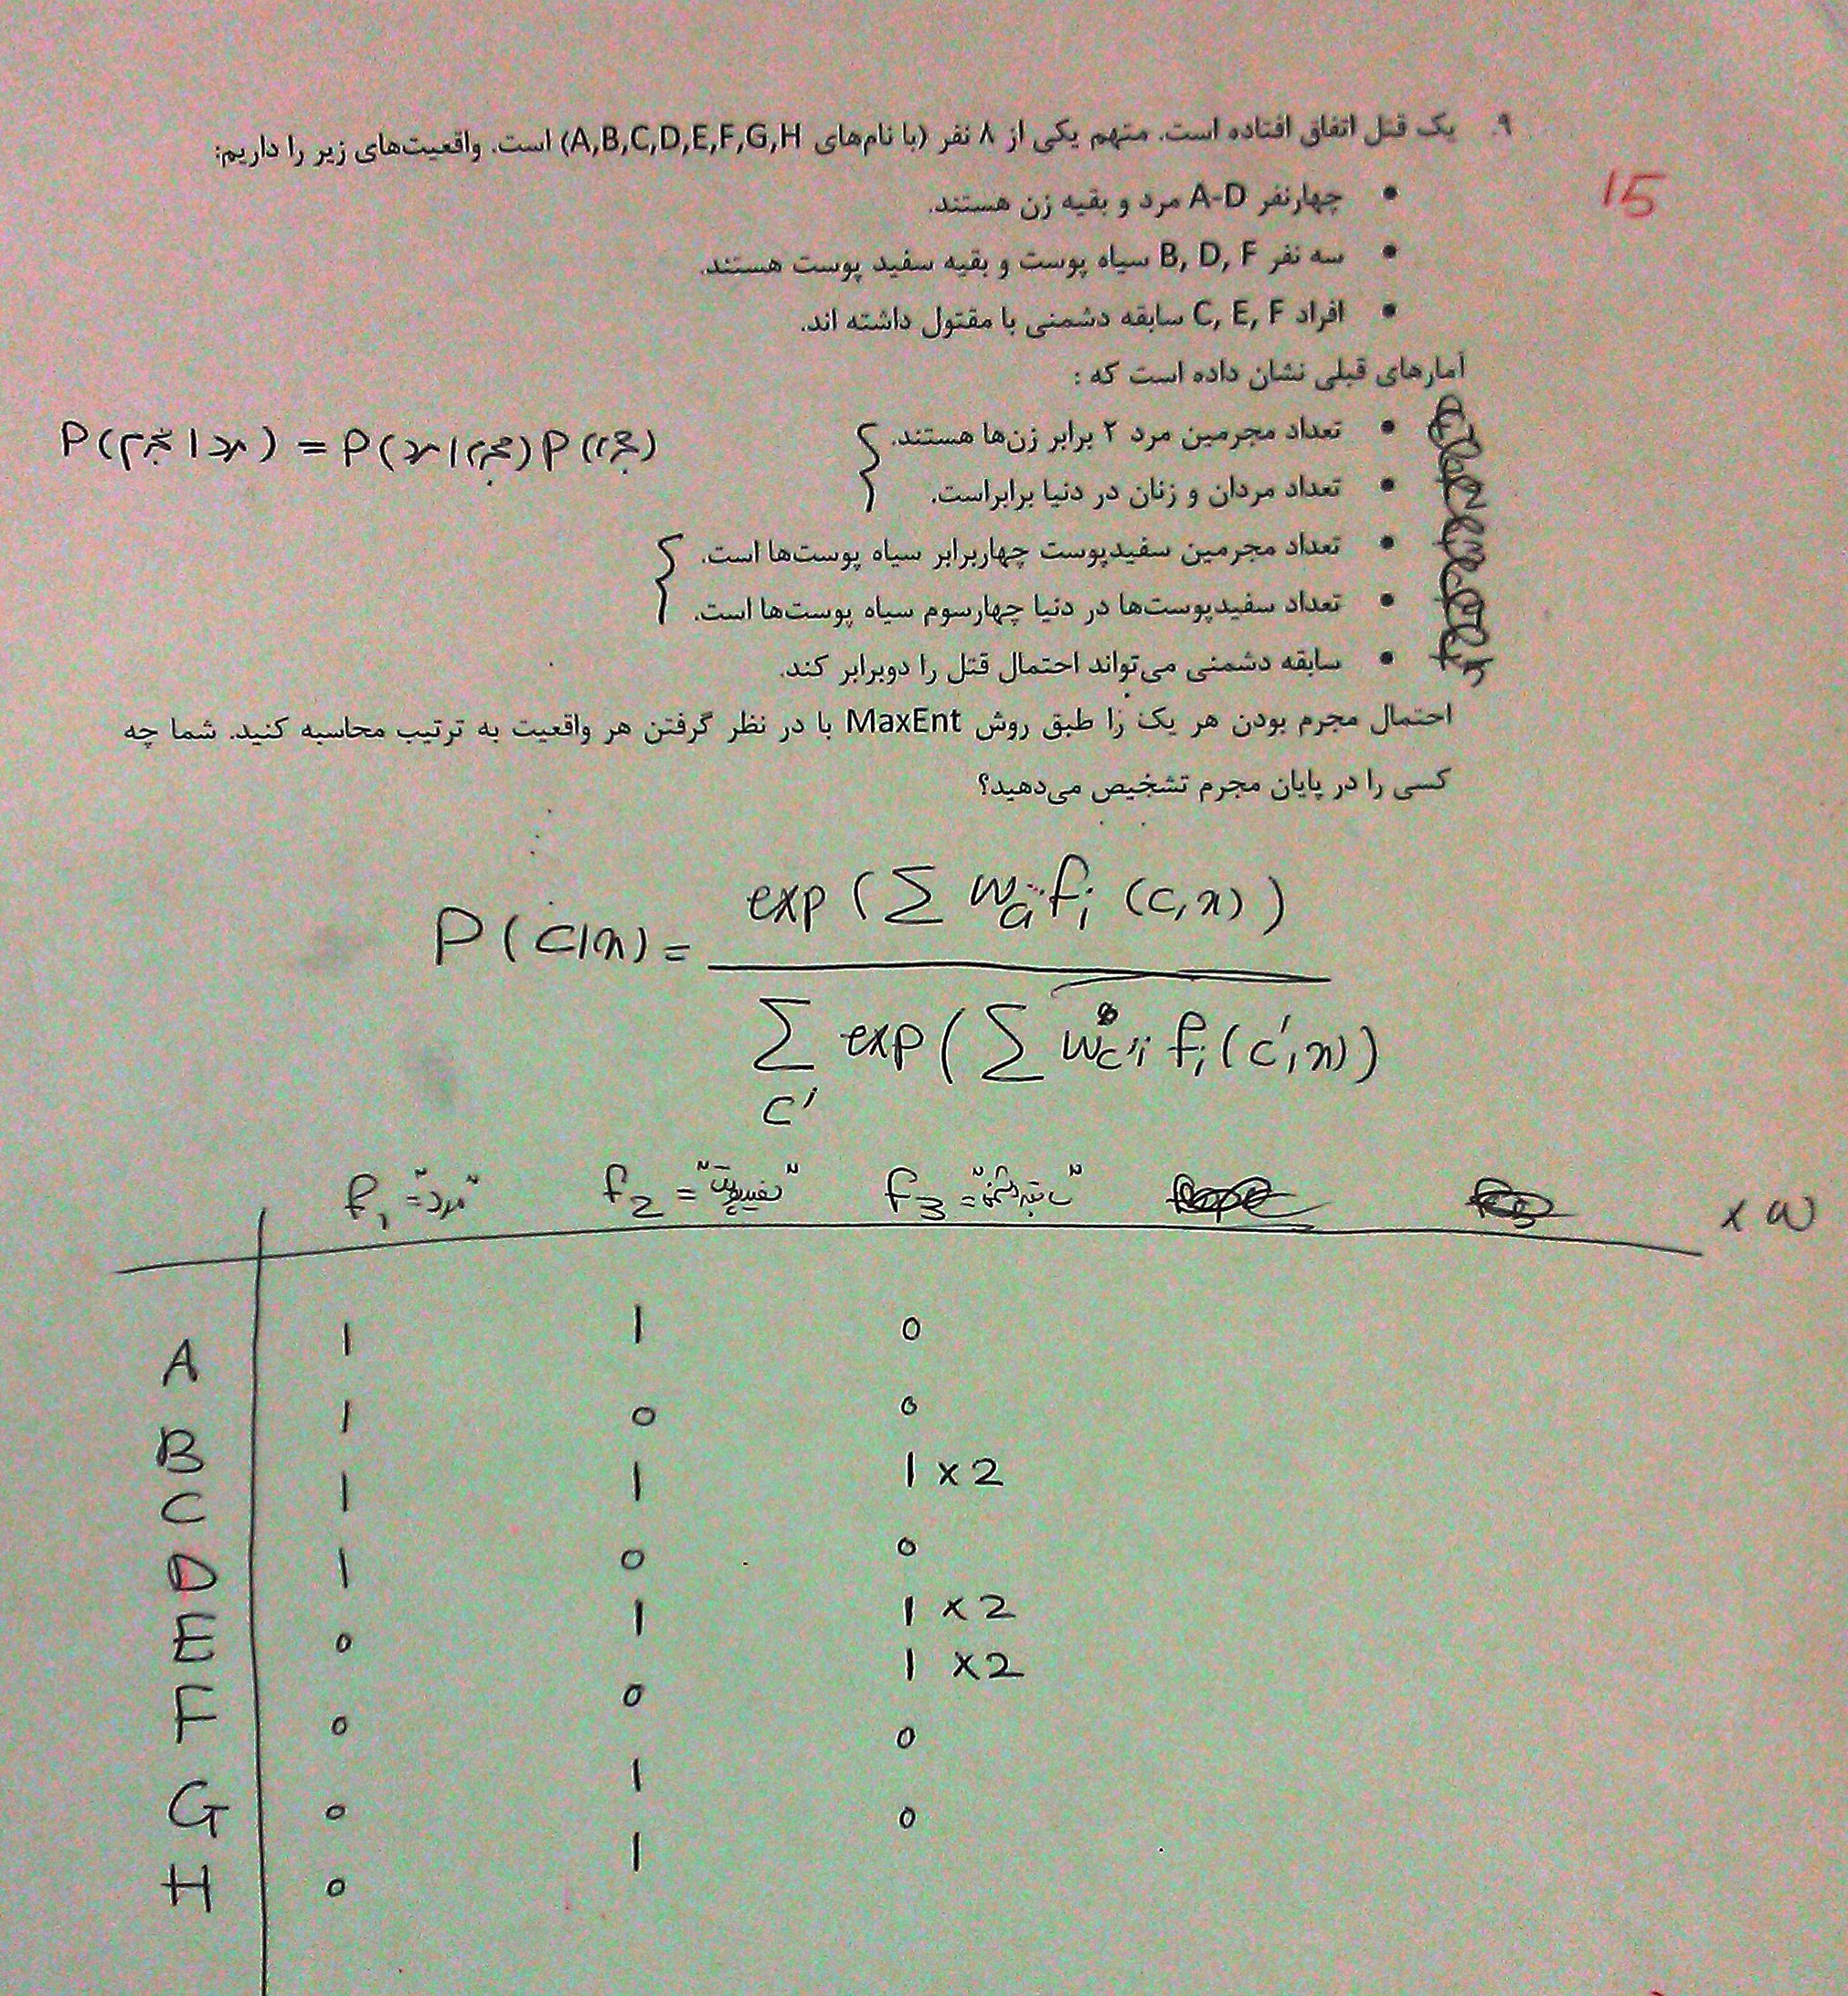 ۹. یک قتل اتفاق افتاده است. متهم یکی از ۸ نفر (با نام‌های A,B,C,D,E,F,G,H) است. واقعیت‌های زیر را داریم:
15
• چهارنفر A-D مرد و بقیه زن هستند.
• سه نفر B, D, F سیاه پوست و بقیه سفید پوست هستند.
• افراد C, E, F سابقه دشمنی با مقتول داشته اند.
آمارهای قبلی نشان داده است که :
• تعداد مجرمین مرد ۲ برابر زن‌ها هستند.
P(مجرم|x) = P(x|مجرم)P(مجرم)
• تعداد مردان و زنان در دنیا برابراست.
• تعداد مجرمین سفیدپوست چهاربرابر سیاه پوست‌ها است.
• تعداد سفیدپوست‌ها در دنیا چهارسوم سیاه پوست‌ها است.
• سابقه دشمنی می‌تواند احتمال قتل را دوبرابر کند.
احتمال مجرم بودن هر یک را طبق روش MaxEnt با در نظر گرفتن هر واقعیت به ترتیب محاسبه کنید. شما چه
کسی را در پایان مجرم تشخیص می‌دهید؟
exp (Σ w_ci f_i (c,x))
P(c|x) =
Σ exp(Σ w_c'i f_i(c',x))
c'
f1 = "مرد" f2 = "سفیدپوست" f3 = "سابقه دشمنی" x w
A 1 1 0
B 1 0 0
C 1 1 1 x 2
D 1 0 0
E 0 1 1 x 2
F 0 0 1 x 2
G 0 1 0
H 0 1 0